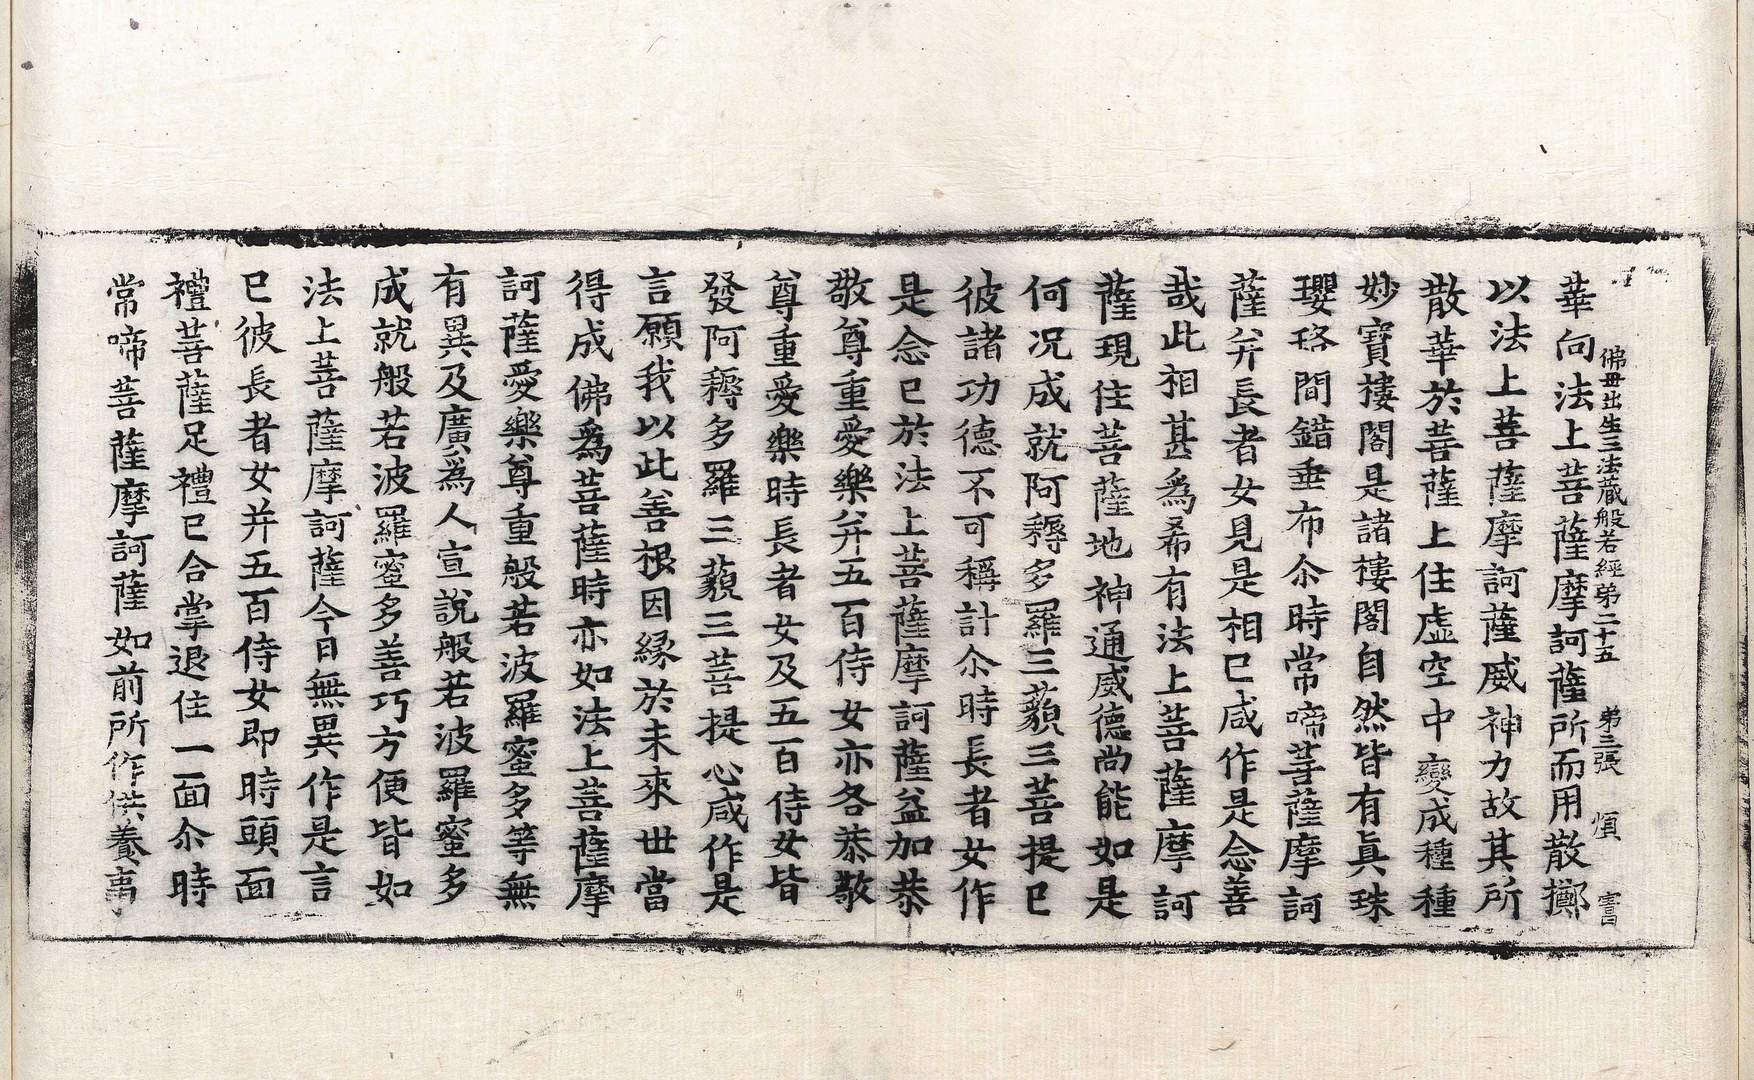 佛毋出生三法蔵般若經苐二十五　苐三張　煩　書
華向法上菩薩摩訶薩所而用散擲
以法上菩薩摩訶薩威神力故其所
散華於菩薩上住虚空中變成種種
妙寶樓閣是諸樓閣自然皆有眞珠
瓔珞間錯垂布尒時常啼菩薩摩訶
薩并長者女見是相已咸作是念善
哉此相甚為希有法上菩薩摩訶
薩現住菩薩地神通威德尚能如是
何况成就阿耨多羅三藐三菩提已
彼諸功德不可稱計尒時長者女作
是念已於法上菩薩摩訶薩益加恭
敬尊重愛樂并五百侍女亦各恭敬
尊重愛樂時長者女及五百侍女皆
發阿耨多羅三藐三菩提心咸作是
言願我以此善根因縁於未來世當
得成佛為菩薩時亦如法上菩薩摩
訶薩愛樂尊重般若波羅蜜多等無
有異及廣為人宣說般若波羅蜜多
成就般若波羅蜜多善巧方便皆如
法上菩薩摩訶薩今日無異作是言
已彼長者女并五百侍女即時頭面
禮菩薩足禮已合掌退住一面尒時
常啼菩薩摩訶薩如前所作供養事